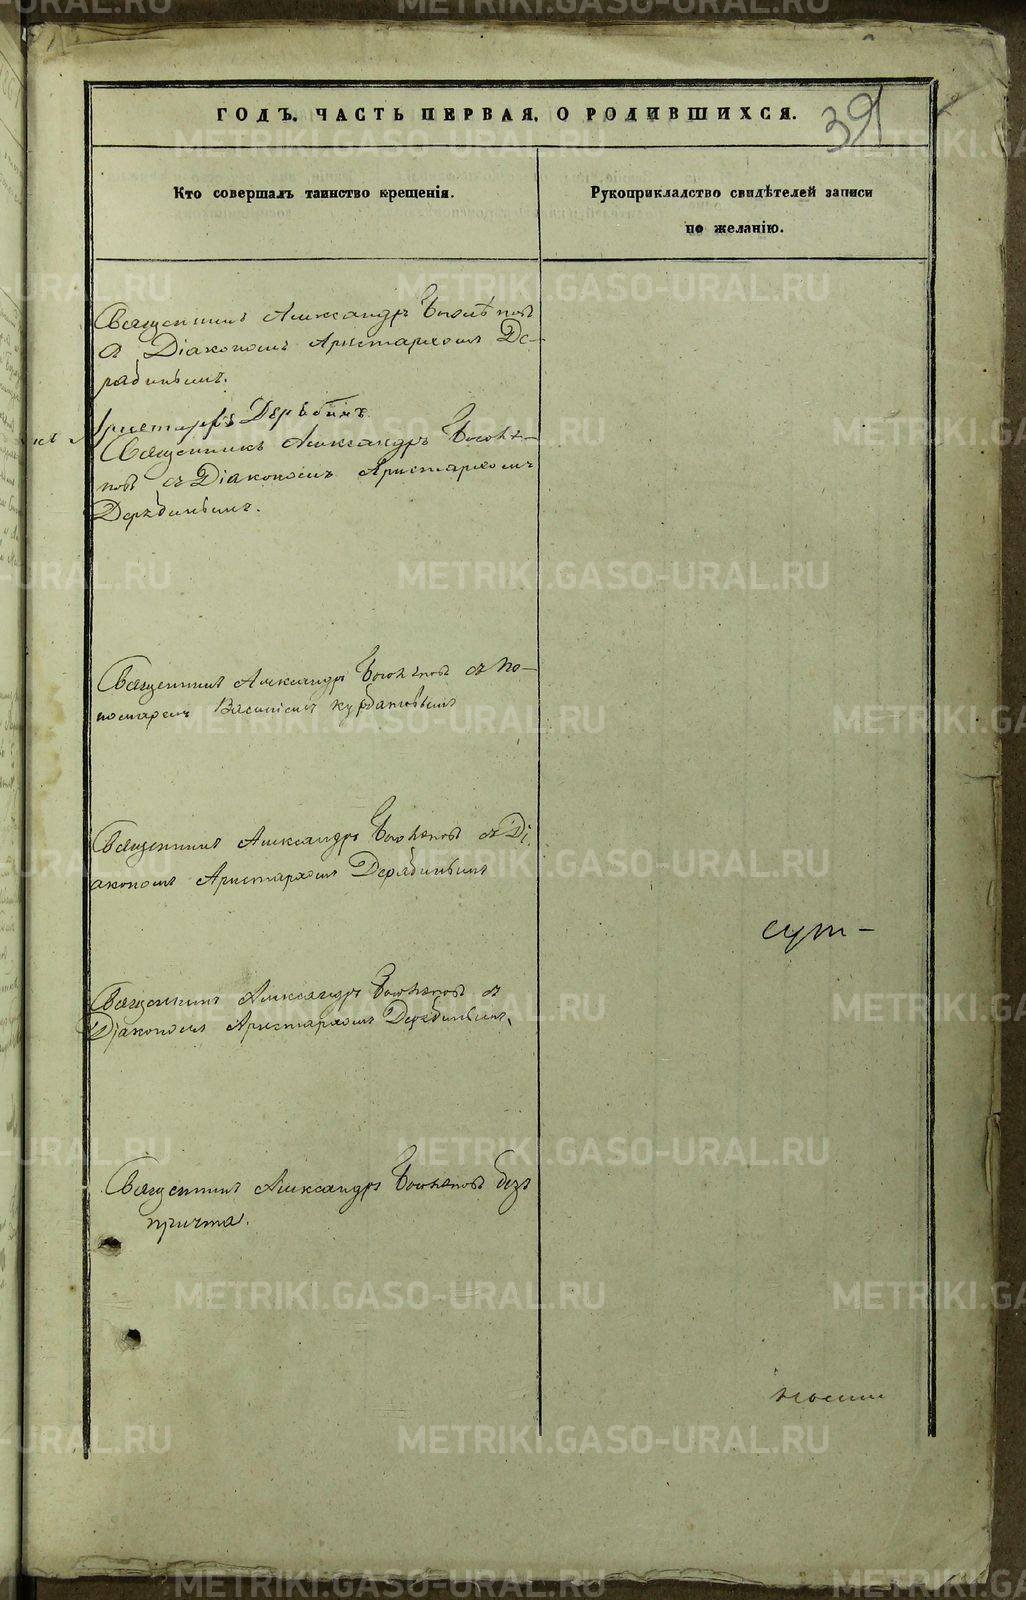 ГОДЪ. ЧАСТЬ ПЕРВАЯ. О РОДИВШИХСЯ.
391
Кто совершалъ таинство крещенія.
Рукоприкладство свидѣтелей записи
по желанію.
Священникъ Александръ
Діакономъ Аристархомъ Де-
рябинымъ.
Аристархъ Дерябинъ
Священникъ Александръ
новъ съ Діакономъ Аристархомъ
Дерябинымъ.
Священникъ Александръ съ По-
номаремъ Василіемъ Курбановымъ
Священникъ Александръ съ Ді
акономъ Аристархомъ Дерябинымъ
Священникъ Александръ съ
Діакономъ Аристархомъ Дерябинымъ.
Священникъ Александръ безъ
причта.
METRIKI.GASO-URAL.RU